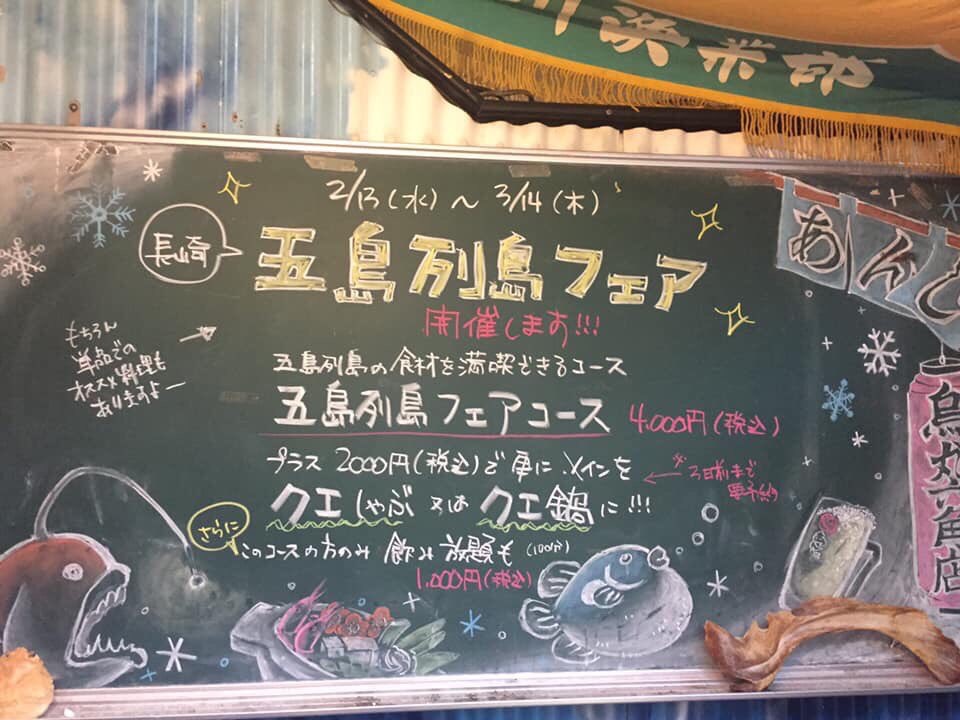 浜米印
2/13(水)〜3/14(木)
長崎
五島列島フェア
開催します!!!
もちろん
単品での
オススメ料理も
ありますよー
五島列島の食材を満喫できるコース
五島列島フェアコース 4,000円(税込)
プラス2000円(税込)で更にメインを
※3日前まで
要予約
クエしゃぶ 又は クエ鍋に!!!
さらに
このコースの方のみ 飲み放題も(100分)
1,000円(税込)
あん
魚